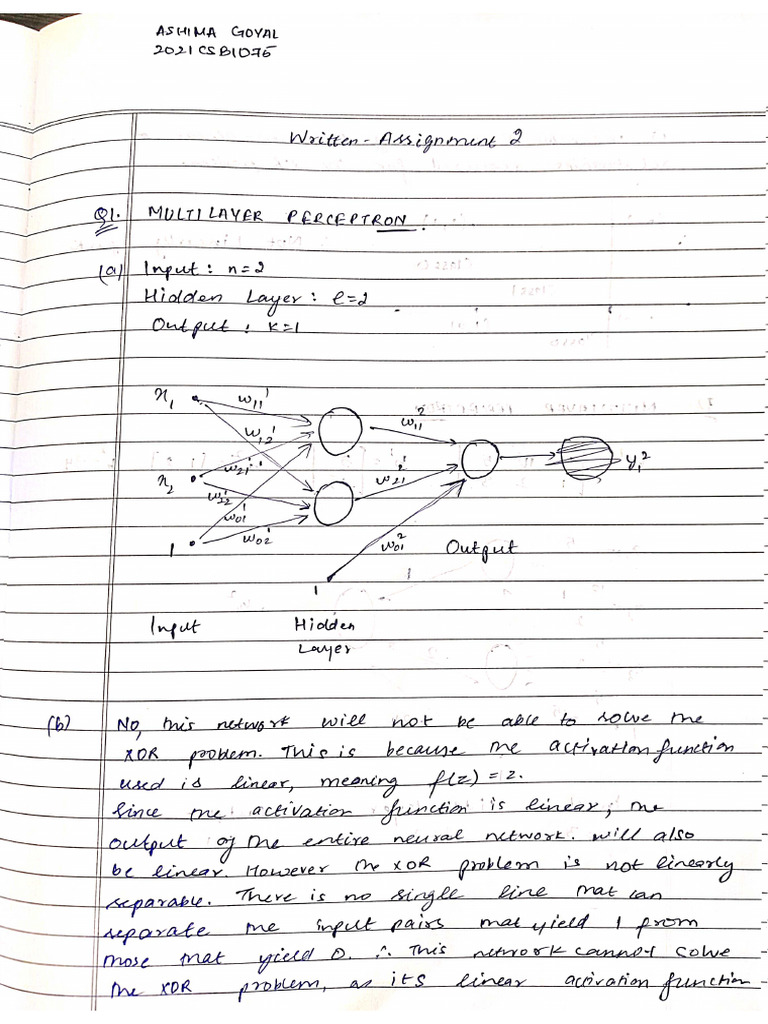 ASHIMA GOYAL
2021CSB1076
Written-Assignment 2
Q1. MULTILAYER PERCEPTRON.
(a) Input: n=2
Hidden Layer: l=2
Output: K=1
x₁ w₁₁¹ w₁₁²
w₁₂¹
x₂ w₂₁¹ w₂₁² y₁²
w₂₂¹
w₀₁¹
1 w₀₂¹ w₀₁² Output
1
Input Hidden
Layer
(b) No, this network will not be able to solve the
XOR problem. This is because the activation function
used is linear, meaning f(z)=z.
Since the activation function is linear, the
output of the entire neural network. will also
be linear. However the XOR problem is not linearly
separable. There is no single line that can
separate the input pairs that yield 1 from
those that yield 0. ∴ This network cannot solve
the XOR problem, as its linear activation function